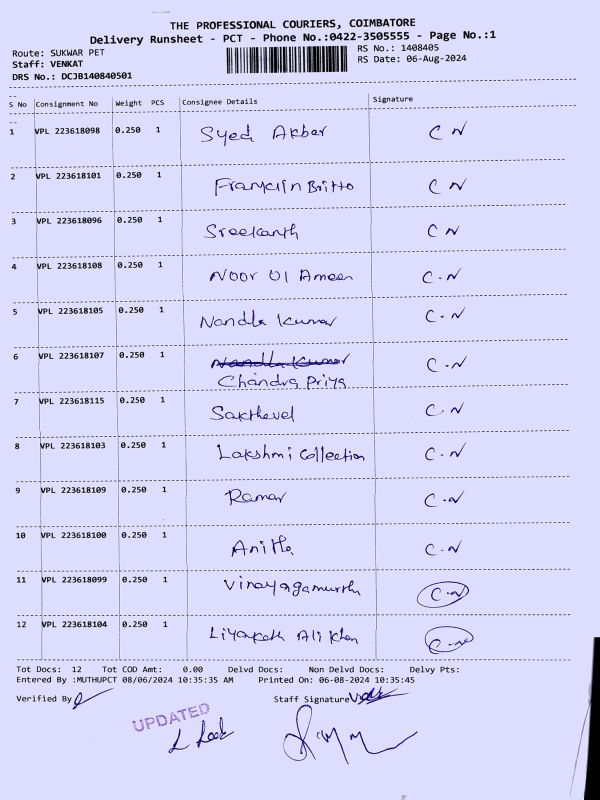 THE PROFESSIONAL COURIERS, COIMBATORE
Delivery Runsheet - PCT - Phone No.:0422-3505555 - Page No.:1
Route: SUKWAR PET RS No.: 1408405
Staff: VENKAT RS Date: 06-Aug-2024
DRS No.: DCJB140840501
S No Consignment No Weight PCS Consignee Details Signature
1 VPL 223618098 0.250 1 Syed Akbar C N
2 VPL 223618101 0.250 1 Franklin Britto C N
3 VPL 223618096 0.250 1 Sreekanth C N
4 VPL 223618108 0.250 1 Noor Ul Ameen C.N
5 VPL 223618105 0.250 1 Nandha Kumar C.N
6 VPL 223618107 0.250 1 Nandha Kumar C.N
Chandra Priya
7 VPL 223618115 0.250 1 Sakthevel C.N
8 VPL 223618103 0.250 1 Lakshmi Collection C.N
9 VPL 223618109 0.250 1 Raman C.N
10 VPL 223618100 0.250 1 Anitha C.N
11 VPL 223618099 0.250 1 Vinayagamurthy C.N
12 VPL 223618104 0.250 1 Liyakath Ali Khan C.N
Tot Docs: 12 Tot COD Amt: 0.00 Delvd Docs: Non Delvd Docs: Delvy Pts:
Entered By :MUTHUPCT 08/06/2024 10:35:35 AM Printed On: 06-08-2024 10:35:45
Verified By Staff Signature
UPDATED